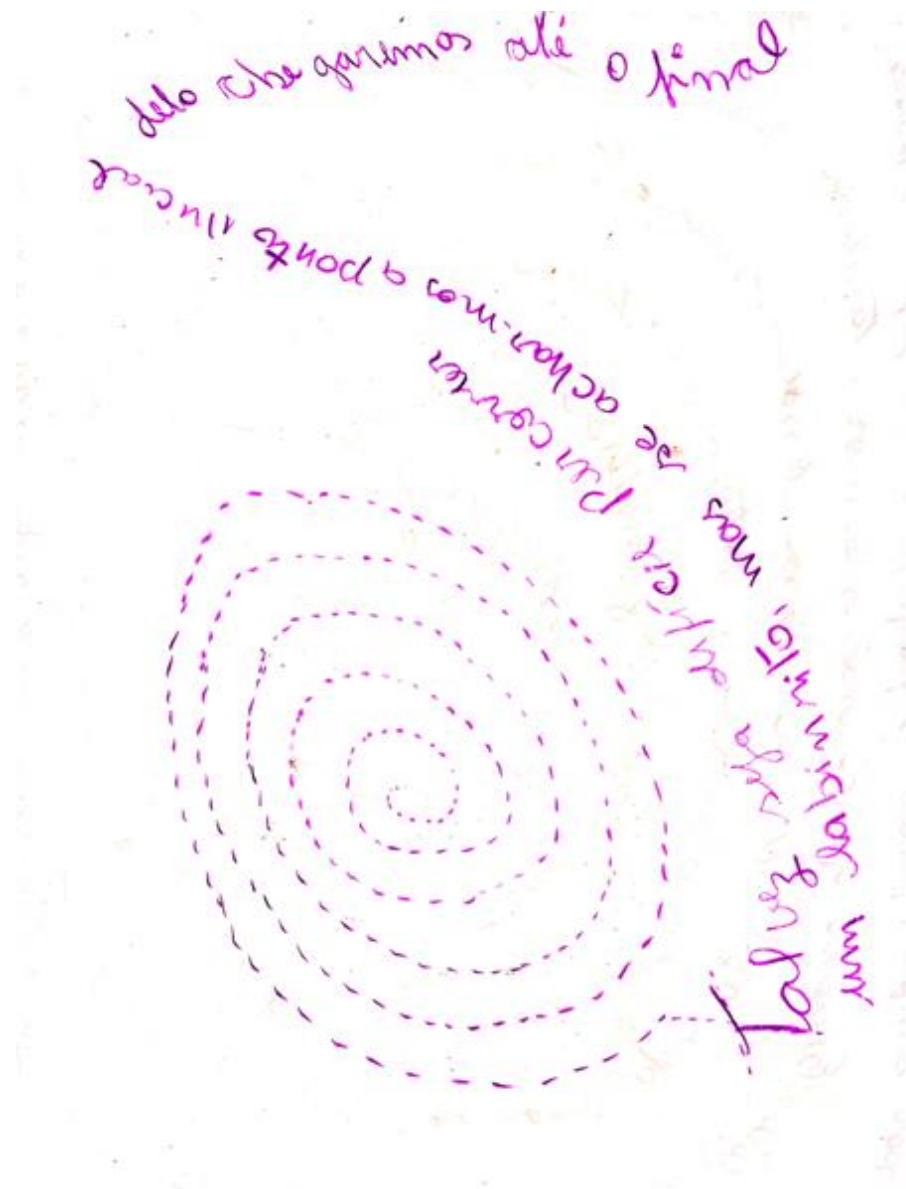 Talvez seja difícil percorrer
um labirinto, mas se acharmos a ponta inicial
dele chegaremos até o final